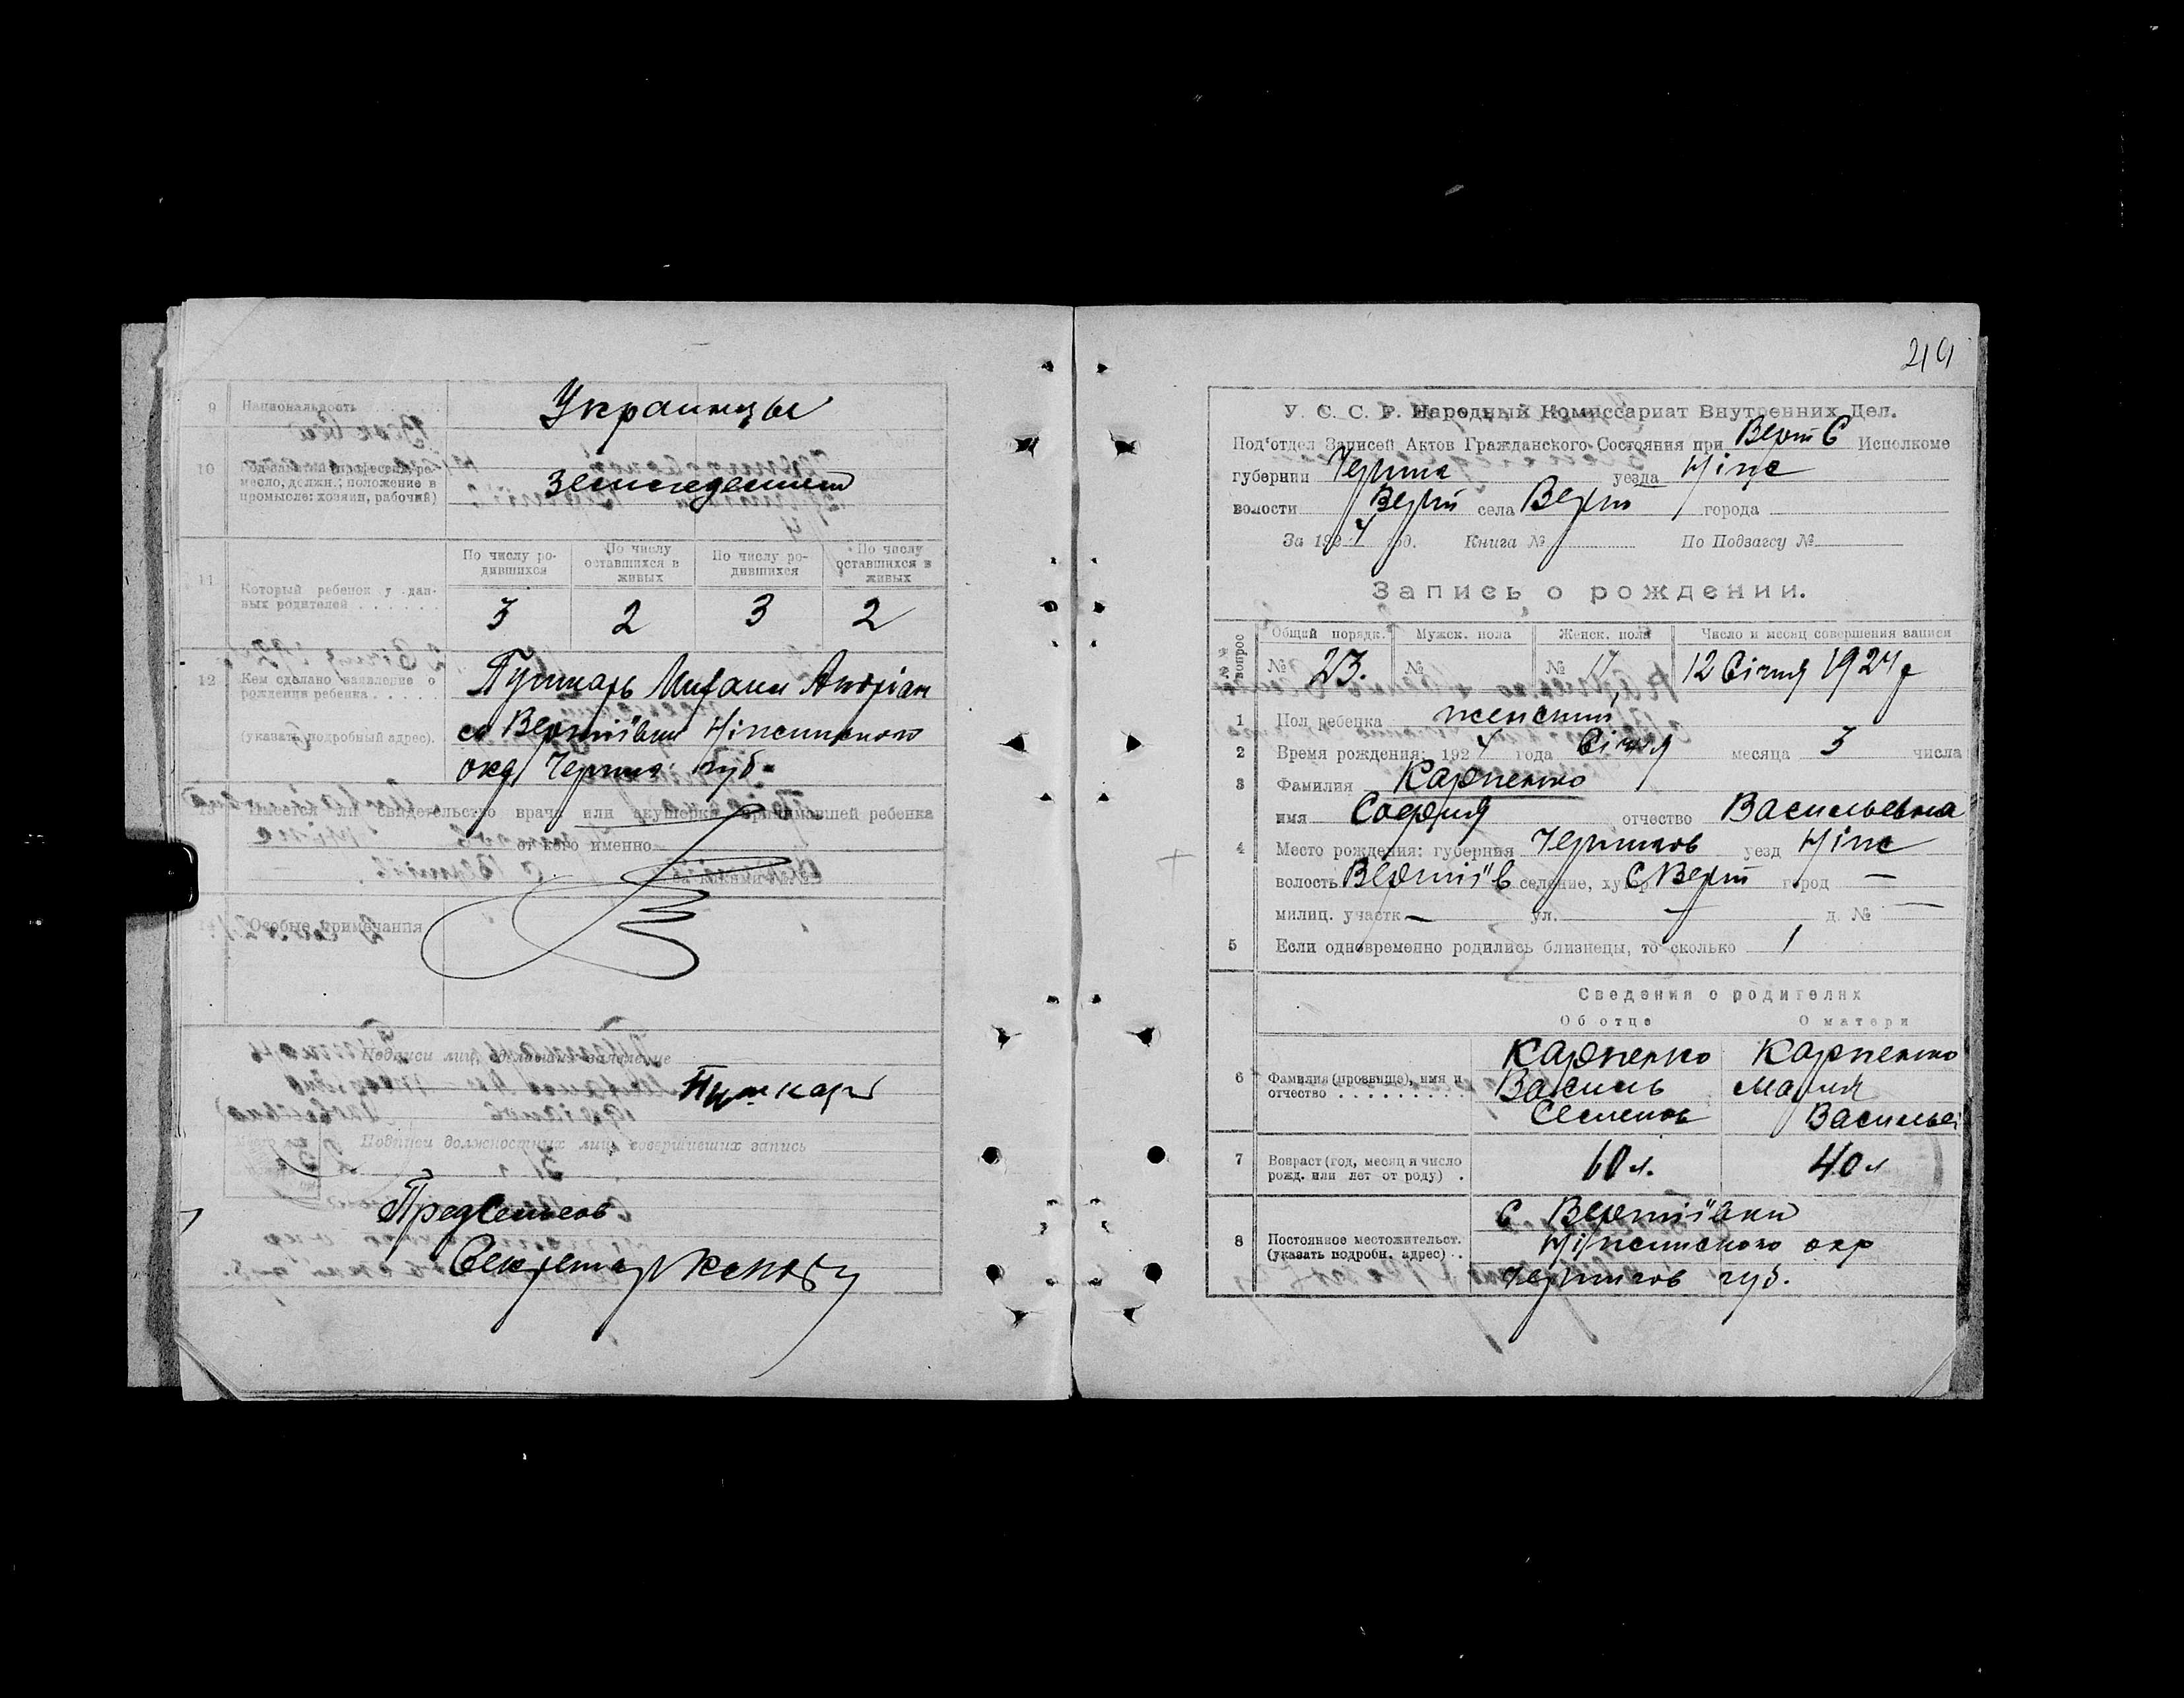 9 Национальность
Украинцы
10 Род занятий (профессия, ремесло, должн.; положение в промысле: хозяин, рабочий)
11 Который ребенок у данных родителей
По числу родившихся
По числу оставшихся в живых
По числу родившихся
По числу оставшихся в живых
3 2 3 2
12 Кем сделано заявление о рождении ребенка
(указать подробный адрес).
Пушкарь
Вертіївки Ніженського
окр Черниг губ.
13 Имеется ли свидетельство врача или акушерки принимавшей ребенка
от кого именно
14 Особые примечания
Подписи лиц, сделавших заявление
Пушкарь
Подписи должностных лиц, совершивших запись
Секретарь
219
У. С. С. Р. Народный Комиссариат Внутренних Дел.
Под'отдел Записей Актов Гражданского Состояния при Верт С Исполкоме
губернии Черниг уезда Ніж
волости Верт села Верт города
За 1924 год. Книга № По Подзагсу №
Запись о рождении.
№№ вопрос
Общий порядк. Мужск. пола Женск. пола Число и месяц совершения записи
№ 23. № № 11 12 Січня 1924 г
1 Пол ребенка женский
2 Время рождения: 1924 года Січня месяца 3 числа
3 Фамилия Карпенко
имя София отчество Васильевна
4 Место рождения: губерния Чернигов уезд Ніж
волость Вертіїв селение, хутор С Верт город —
милиц. участк — ул. — д. № —
5 Если одновременно родились близнецы, то сколько 1
Сведения о родителях
Об отце О матери
6 Фамилия (прозвище), имя и отчество
Карпенко Карпенко
Василь Мария
Семенов Василье
7 Возраст (год, месяц и число рожд. или лет от роду)
60 л. 40 л
8 Постоянное местожительст. (указать подробн. адрес)
С Вертіївки
Ніженського окр
Чернигов губ.